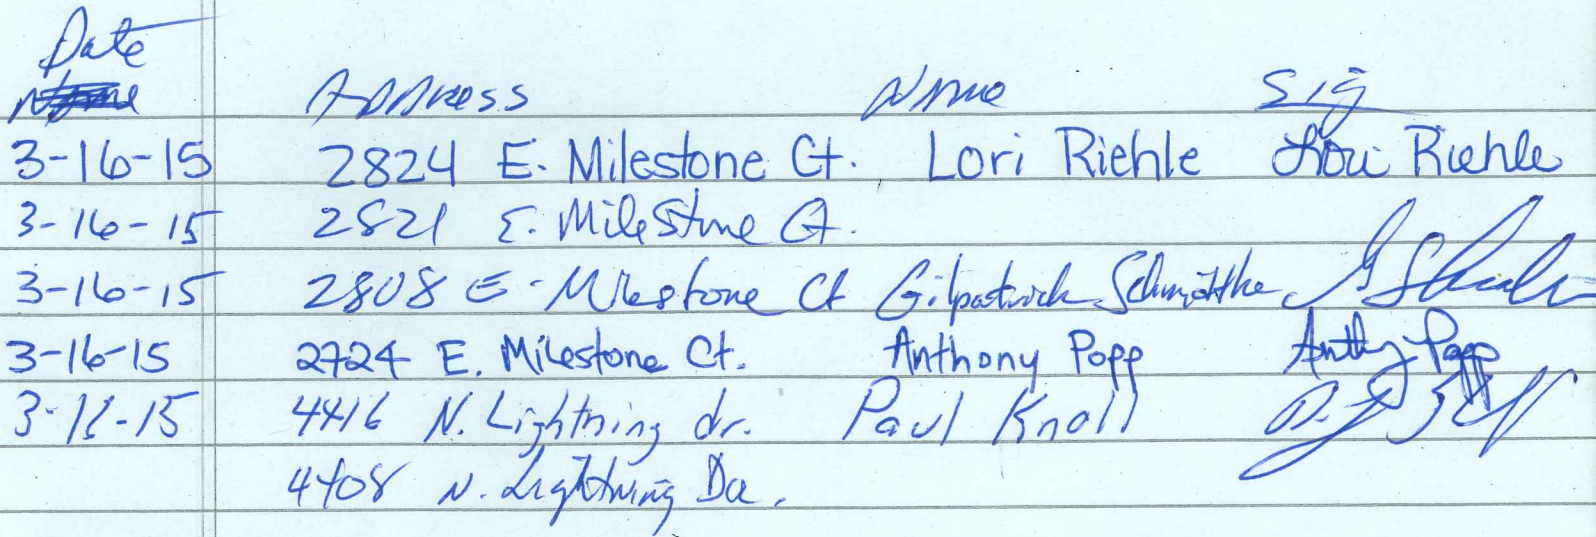 Date
Address Name Sig
3-16-15 2824 E. Milestone Ct. Lori Riehle Lori Riehle
3-16-15 2821 E. Milestone Ct.
3-16-15 2808 E. Milestone Ct Gilpatrick
3-16-15 2724 E. Milestone Ct. Anthony Popp Anthony Popp
3-16-15 4416 N. Lightning dr. Paul Knoll
4408 N. Lightning Dr.